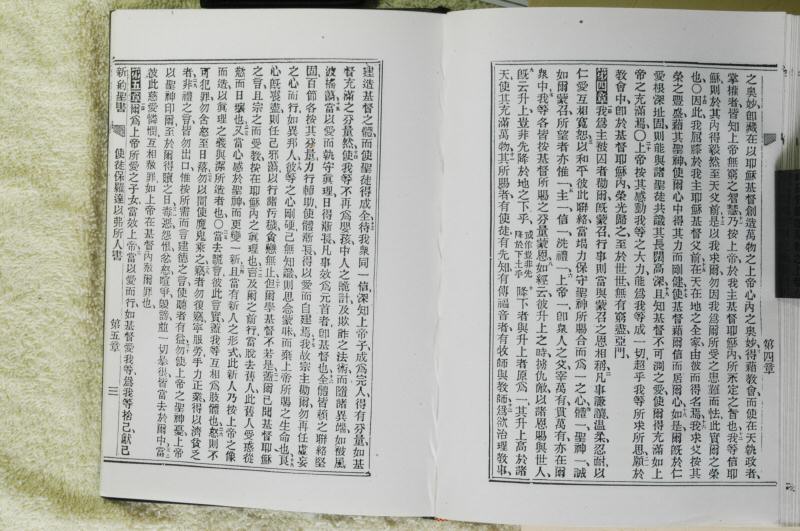 第四章
之奧妙卽藏在以耶穌基督創造萬物之上帝心內之奧妙得藉敎會而使在天執政者、
掌權者皆知上帝無窮之智慧乃按上帝於我主基督耶穌內所永定之旨也我等信耶
穌則於其內得毅然至天父前是以我求爾勿因我爲爾所受之患難而怯此實爾之榮
也○因此我屈膝於我主耶穌基督父前在天在地之全家由彼而得名焉我求父按其
榮之豐盛藉其聖神使爾心中得其力而剛健使基督藉爾信而居爾心如是爾旣於仁
愛根深址固則能與諸聖徒共識其長闊高深且知基督不可測之愛使爾得充滿如上
帝之充滿焉○上帝按其感動我等之大力能爲我等成一切超乎我等所求所思願於
敎會中卽於基督耶穌內榮光歸之至於世世無有窮盡亞門、
第四章我爲主被囚者勸爾旣蒙召行事則當與蒙召之恩相稱凡事謙讓溫柔忍耐以
仁愛互相寬恕以和平彼此聯絡當竭力保守聖神所賜合而爲一之心體一聖神一誠
如爾蒙召所望者亦惟一主一信一洗禮一上帝一卽衆人之父宰萬有貫萬有亦在爾
衆中我等各皆按基督所賜之分量蒙恩如經云彼升上之時擄仇敵以諸恩賜與世人、
旣云升上豈非先降於地之下乎 或作豈非先降於下土乎 降下者與升上者原爲一其升上高於諸
天使其充滿萬物其所賜者有使徒有先知有傳福音者有牧師與敎師爲欲治理敎事、
建造基督之體而使聖徒得成全待我衆同一信深知上帝子成爲完人得有分量如基
督充滿之分量然使我等不再爲嬰孩中人之詭計及欺詐之法術而隨諸異端如被風
波搖蕩當以愛而執守眞理日得漸長凡事效爲元首者卽基督也全體皆賴之聯絡堅
固百節各按其分量力行輔助使體漸長得以愛而自建焉我故宗主勸爾勿再任虛妄
之心而行如異邦人彼等之心剛硬己無知識則思念蒙昧而棄上帝所賜之生命也良
心旣喪盡則任己邪蕩以行諸汚穢貪戀無止但爾學基督不若是蓋爾已聞基督耶穌
之言且宗之而受敎按在耶穌內之眞理也言及爾之前行當脫去舊人此舊人受惑從
慾而日壞也又當心感於聖神而更變一新且當有新人之形式此新人乃按上帝之像
而造以眞理之義與潔所造者也○當去謊言彼此言實蓋我等互相爲肢體也怒則不
可犯罪勿含怒至日落勿以間使魔鬼乘之竊者勿復竊寧服勞手力正業得以濟貧乏
者非禮之言皆勿出口惟按所需而言建德之言使聽者有益勿使上帝之聖神憂上帝
以聖神印爾至於爾得贖之日毒惡怨恨忿怒喧嘩毀謗並一切暴很皆當去於爾中當
彼此慈愛憐憫互相赦罪如上帝在基督內赦爾罪也
第五章爾爲上帝所愛之子女當效上帝當以愛而行如基督愛我等爲我等捨己獻已
新約聖書 使徒保羅達以弗所人書 第五章 三